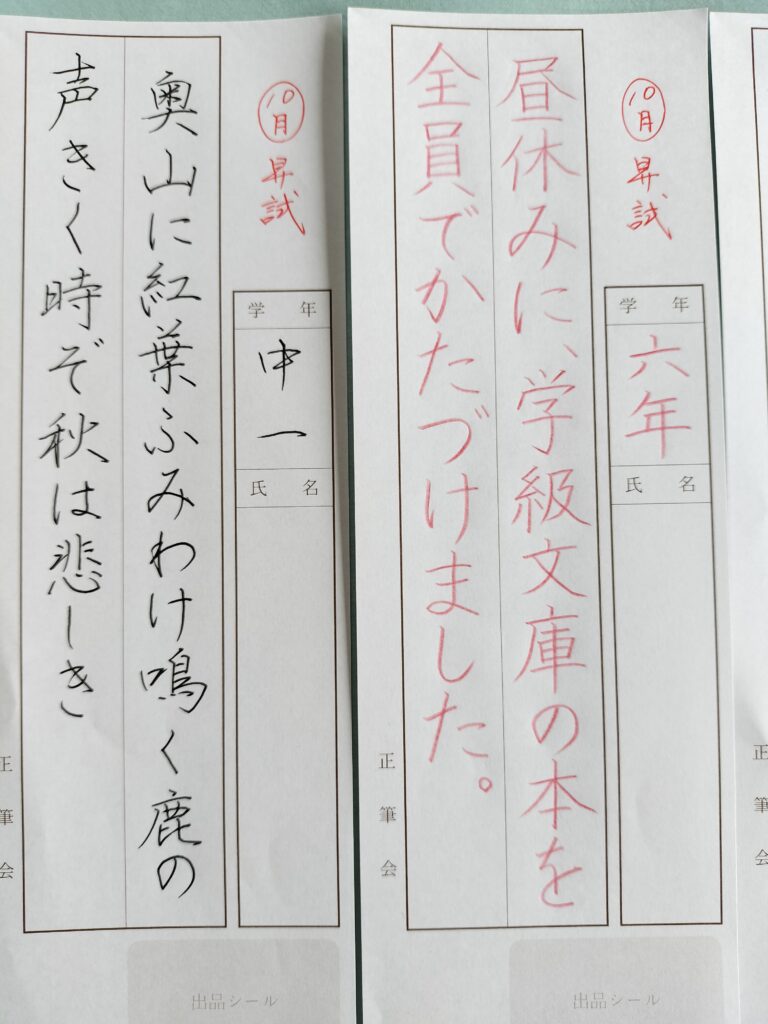 10月 昇試
昼休みに、学級文庫の本を
全員でかたづけました。
学年
六年
氏名
正筆会
出品シール
10月 昇試
奥山に紅葉ふみわけ鳴く鹿の
声きく時ぞ秋は悲しき
学年
中一
氏名
正筆会
出品シール
正筆会